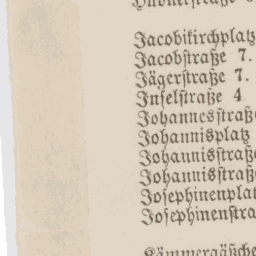 Jacobikirchplatz
Jacobstraße 7.
Jägerstraße 7.
Inselstraße 4
Johannesstraße
Johannisplatz
Johannisstraße
Johannisstraße
Josephinenplat
Josephinenstra